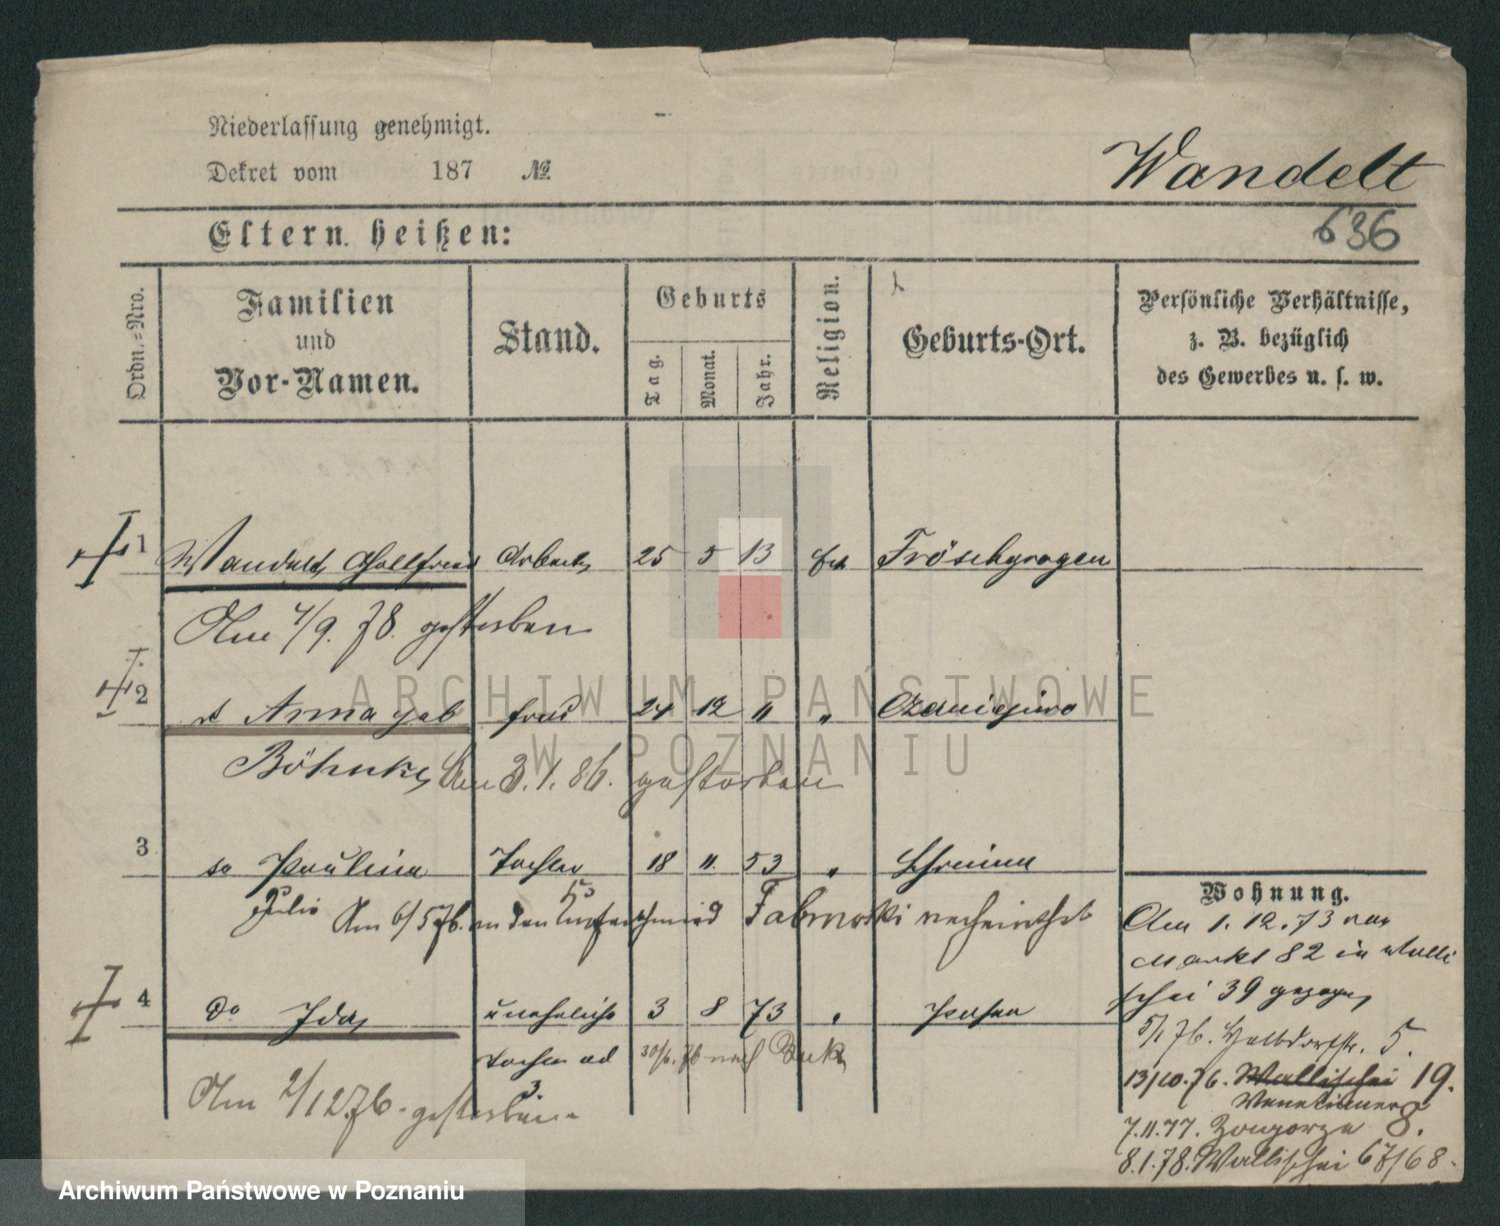 Niederlassung genehmigt.
Dekret vom 187 №
Wandelt
636
Eltern heißen:
Ordn.-Nro.
Familien
und
Vor-Namen.
Stand.
Geburts
Tag.
Monat.
Jahr.
Religion.
Geburts-Ort.
Persönliche Verhältnisse,
z. B. bezüglich
des Gewerbes u. s. w.
1 Wandelt, Gottfried Arbeiter 25 5 13
Am 4/9. 78. gestorben
2 Anna geb frau 24 12 "
Böhnke, Am 3.1.86. gestorben
3 Paulina Tochter 18 11. 53
Julie Am 6/5 76. an den verheirathet
Wohnung.
Am 1. 12. 73 von
Markt 82 in Walli
schei 39 gezogen
4 do Ida, uneheliche 3 8 73 " Posen
Tochter ad 3 30/6. 76 nach Buk
Am 2/12 76. gestorben
5/1 76. Halbdorfstr. 5.
13/10. 76. Wallischei 19.
Venetianer 8.
7.11.77. Zagorze
8.1.78. Wallischei 67/68.
ARCHIWUM PAŃSTWOWE
W POZNANIU
Archiwum Państwowe w Poznaniu